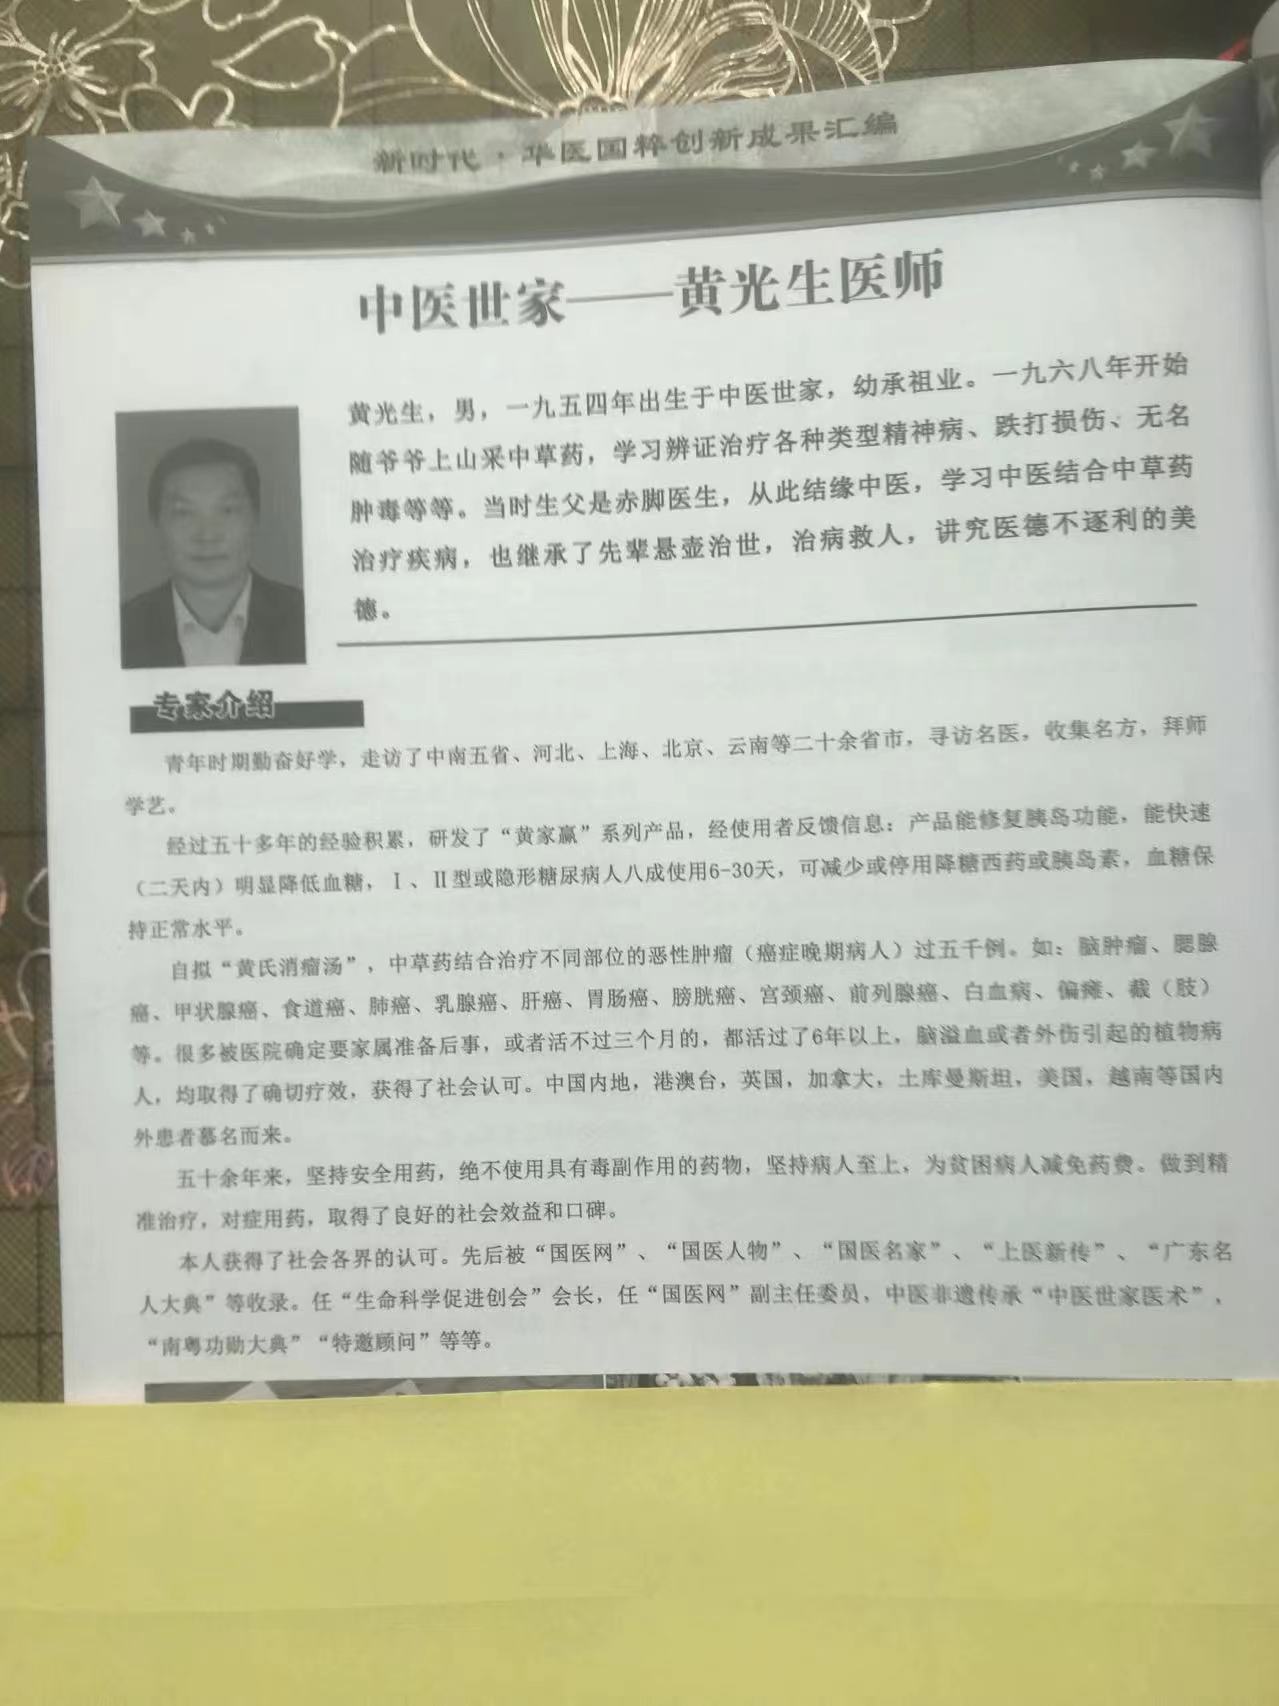 新时代·华医国粹创新成果汇编
中医世家——黄光生医师
黄光生，男，一九五四年出生于中医世家，幼承祖业。一九六八年开始
随爷爷上山采中草药，学习辨证治疗各种类型精神病、跌打损伤、无名
肿毒等等。当时生父是赤脚医生，从此结缘中医，学习中医结合中草药
治疗疾病，也继承了先辈悬壶治世，治病救人，讲究医德不逐利的美
德。
专家介绍
青年时期勤奋好学，走访了中南五省、河北、上海、北京、云南等二十余省市，寻访名医，收集名方，拜师
学艺。
经过五十多年的经验积累，研发了“黄家赢”系列产品，经使用者反馈信息：产品能修复胰岛功能，能快速
（二天内）明显降低血糖，Ⅰ、Ⅱ型或隐形糖尿病人八成使用6-30天，可减少或停用降糖西药或胰岛素，血糖保
持正常水平。
自拟“黄氏消瘤汤”，中草药结合治疗不同部位的恶性肿瘤（癌症晚期病人）过五千例。如：脑肿瘤、腮腺
癌、甲状腺癌、食道癌、肺癌、乳腺癌、肝癌、胃肠癌、膀胱癌、宫颈癌、前列腺癌、白血病、偏瘫、截（肢）
等。很多被医院确定要家属准备后事，或者活不过三个月的，都活过了6年以上，脑溢血或者外伤引起的植物病
人，均取得了确切疗效，获得了社会认可。中国内地，港澳台，英国，加拿大，土库曼斯坦，美国，越南等国内
外患者慕名而来。
五十余年来，坚持安全用药，绝不使用具有毒副作用的药物，坚持病人至上，为贫困病人减免药费。做到精
准治疗，对症用药，取得了良好的社会效益和口碑。
本人获得了社会各界的认可。先后被“国医网”、“国医人物”、“国医名家”、“上医新传”、“广东名
人大典”等收录。任“生命科学促进创会”会长，任“国医网”副主任委员，中医非遗传承“中医世家医术”，
“南粤功勋大典”“特邀顾问”等等。